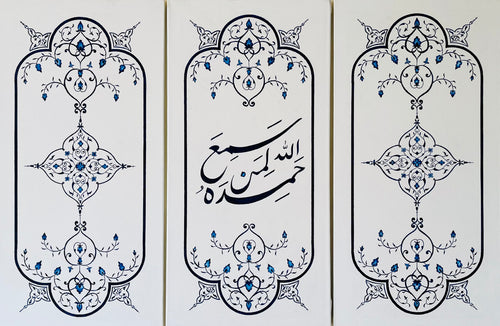 سَمِعَ اللهُ لِمَن حَمِدَهُ